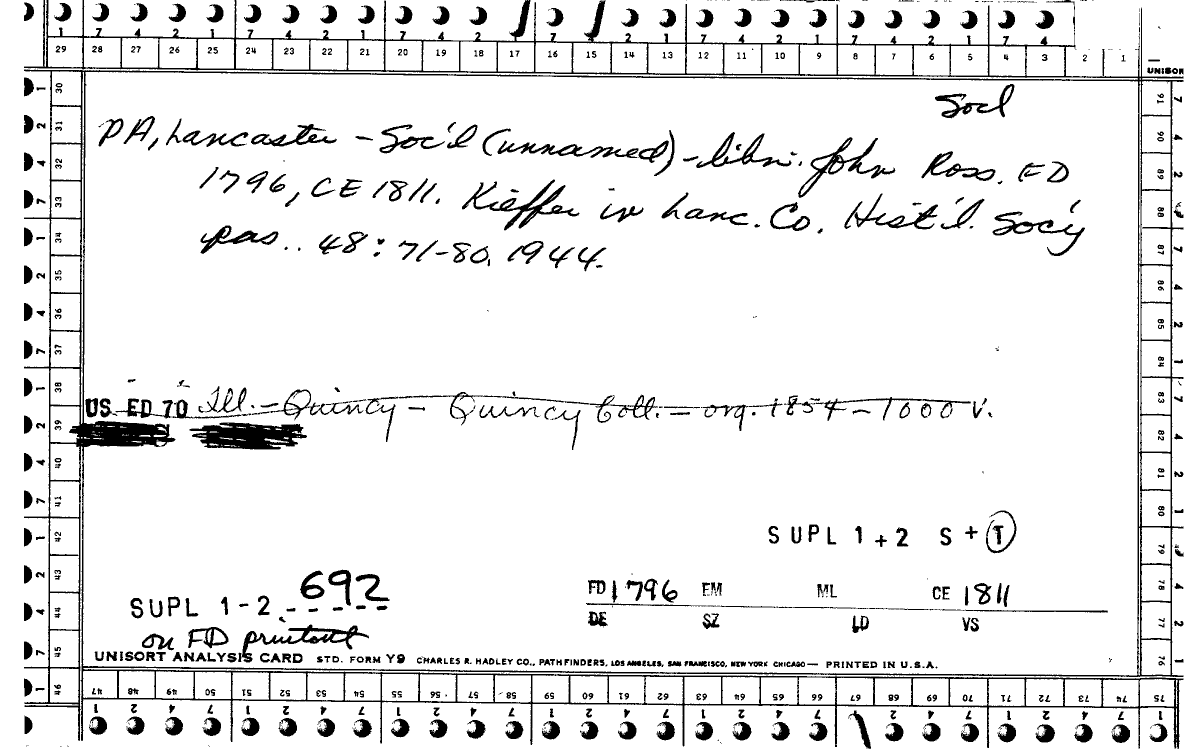 1 7 4 2 1 7 4 2 1 7 4 2 7 2 1 7 4 2 1 7 4 2 1 7 4
29 28 27 26 25 24 23 22 21 20 19 18 17 16 15 14 13 12 11 10 9 8 7 6 5 4 3 2 1
UNISOR
Soc'l
PA, Lancaster - Soc'l (unnamed) - libn. John Ross. ED
1796, CE 1811. Kieffer in Lanc. Co. Hist'l. Soc'y
pas.. 48: 71-80, 1944.
US ED 70 Ill. - Quincy - Quincy Coll. - org. 1854 - 1000 V.
SUPL 1 + 2 S + T
SUPL 1-2 692
on FD printout
FD 1796 EM ML CE 1811
DE SZ LD VS
UNISORT ANALYSIS CARD STD. FORM Y9 CHARLES R. HADLEY CO., PATHFINDERS, LOS ANGELES, SAN FRANCISCO, NEW YORK CHICAGO — PRINTED IN U.S.A.
30 31 32 33 34 35 36 37 38 39 40 41 42 43 44 45 46
91 90 89 88 87 86 85 84 83 82 81 80 79 78 77 76
47 48 49 50 51 52 53 54 55 56 57 58 59 60 61 62 63 64 65 66 67 68 69 70 71 72 73 74 75